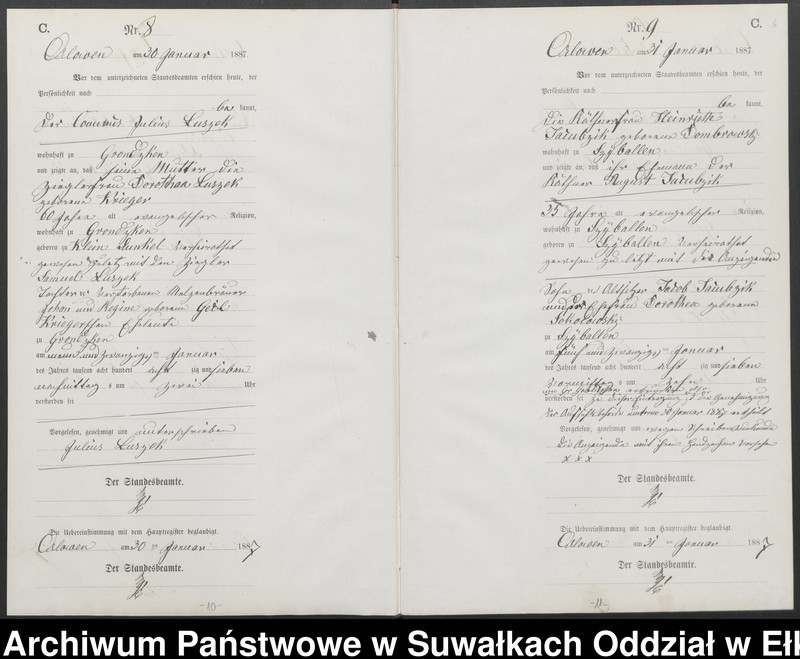 C.
Nr. 8
Orlowen am 30 Januar 1887.
Vor dem unterzeichneten Standesbeamten erschien heute, der
Persönlichkeit nach
be kannt,
der Commis Julius Luszek
wohnhaft zu Grondzken
und zeigte an, daß seine Mutter die
Zieglerfrau Dorothea Luszek
geborene Krieger
60 Jahre alt evangelischer Religion,
wohnhaft zu Grondzken
geboren zu Klein Lunkel verheirathet
gewesen zuletzt mit dem Ziegler
Samuel Luszek
Tochter der verstorbenen Malzenbräuer
Johan und Regine geborene
Kriegerschen Eheleute
zu Grondzken
am neun und zwanzigsten Januar
des Jahres tausend acht hundert acht zig und sieben
nachmittag s um zwei Uhr
verstorben sei
Vorgelesen, genehmigt und unterschrieben
Julius Luszek
Der Standesbeamte.
Die Uebereinstimmung mit dem Hauptregister beglaubigt.
Orlowen am 30 ten Januar 1887
Der Standesbeamte.
-10-
C.
Nr. 9
Orlowen am 31 Januar 1887
Vor dem unterzeichneten Standesbeamten erschien heute, der
Persönlichkeit nach
be kannt,
die Käthnerfrau Heinriette
Jakubzik geborene Dombrowski
wohnhaft zu Szyballen
und zeigte an, daß ihr Ehemann der
Käthner August Jakubzik
35 Jahre alt evangelischer Religion,
wohnhaft zu Szyballen
geboren zu Szyballen verheirathet
gewesen zu letzt mit der Anzeigenden
Sohn der Altsitzer Jacob Jakubzik
und der Ehefrau Dorothea geborene
Sokolowski
zu Szyballen
am fünf und zwanzigsten Januar
des Jahres tausend acht hundert acht zig und sieben
Vormittag s um zehn Uhr
verstorben sei zu dieser Eintragung ist die Genehmigung
der Aufsichtsbehörde unterm 30 Januar 1887 ertheilt
Vorgelesen, genehmigt und wegen Schreibensunkunde
die Anzeigende mit ihren Handzeichen versehen
x x x
Der Standesbeamte.
Die Uebereinstimmung mit dem Hauptregister beglaubigt.
Orlowen am 31 ten Januar 1887
Der Standesbeamte.
Archiwum Państwowe w Suwałkach Oddział w Ełk